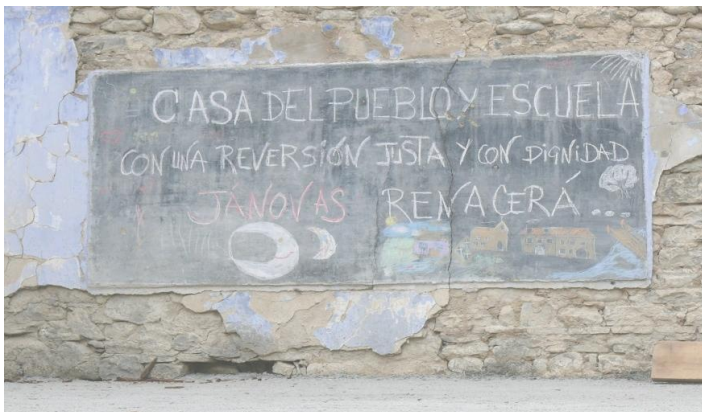 CASA DEL PUEBLO Y ESCUELA
CON UNA REVERSIÓN JUSTA Y CON DIGNIDAD
JÁNOVAS RENACERÁ...